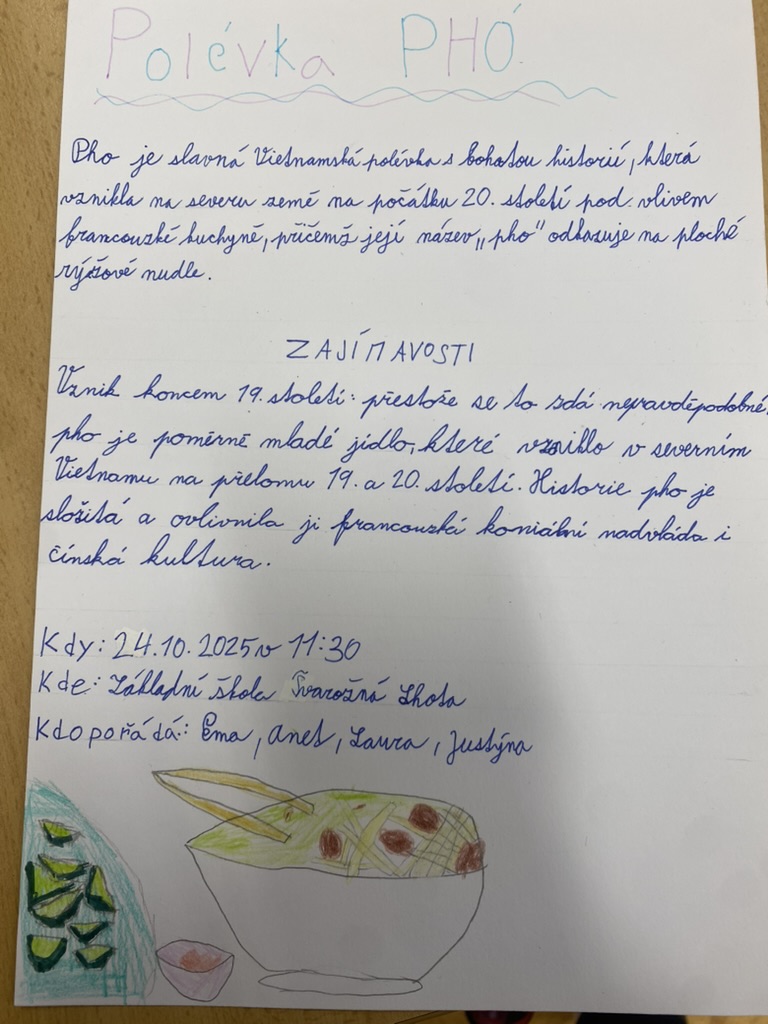 Polévka PHÓ
Pho je slavná Vietnamská polévka s bohatou historií, která
vznikla na severu země na počátku 20. století pod vlivem
francouzské kuchyně, přičemž její název „pho" odkazuje na ploché
rýžové nudle.
ZAJÍMAVOSTI
Vznik koncem 19. století: přestože se to zdá nepravděpodobné,
pho je poměrně mladé jídlo, které vzniklo v severním
Vietnamu na přelomu 19. a 20. století. Historie pho je
složitá a ovlivnila ji francouzká koniální nadvláda i
čínská kultura.
Kdy: 24.10.2025 v 11:30
Kde: Základní škola Tvarožná Lhota
Kdo pořádá: Ema, Anet, Laura, Justýna